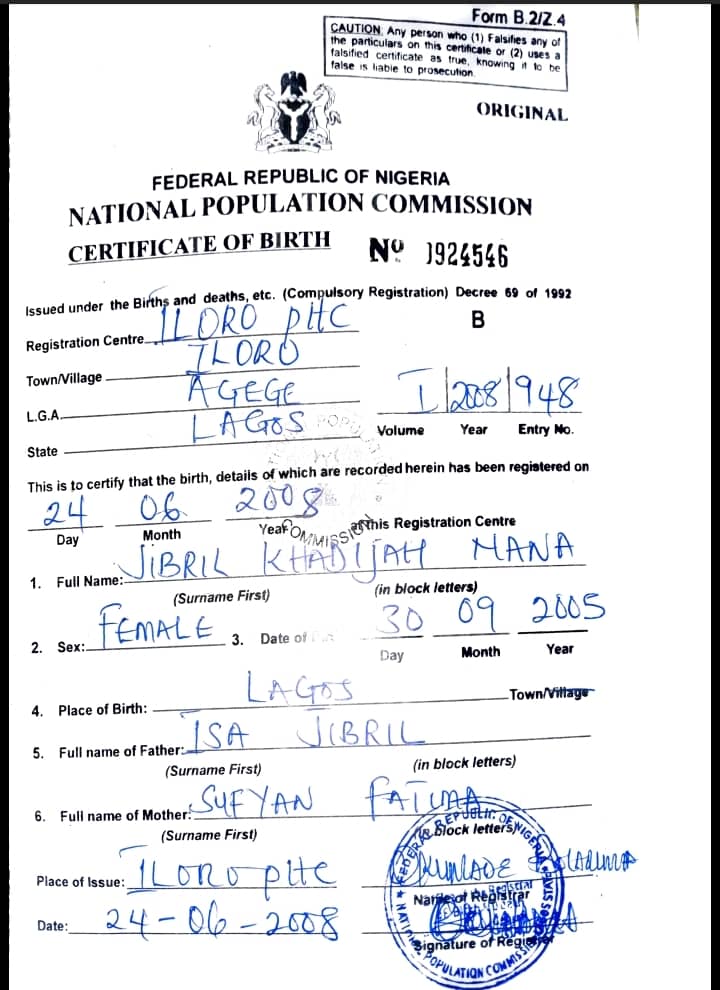 Form B.2/Z.4
CAUTION: Any person who (1) Falsifies any of
the particulars on this certificate or (2) uses a
falsified certificate as true, knowing it to be
false is liable to prosecution
ORIGINAL
FEDERAL REPUBLIC OF NIGERIA
NATIONAL POPULATION COMMISSION
CERTIFICATE OF BIRTH Nº 1924546
Issued under the Births and deaths, etc. (Compulsory Registration) Decree 69 of 1992
B
Registration Centre ILORO PHC
Town/Village ILORO
L.G.A. AGEGE
State LAGOS
I 2008 948
Volume Year Entry No.
This is to certify that the birth, details of which are recorded herein has been registered on
24 06 2008
Day Month Year at this Registration Centre
1. Full Name: JIBRIL KHADIJAH MANA
(Surname First) (in block letters)
2. Sex: FEMALE 3. Date of 30 09 2005
Day Month Year
4. Place of Birth: LAGOS Town/Village
5. Full name of Father: ISA JIBRIL
(Surname First) (in block letters)
6. Full name of Mother: SUFYAN FATIMA
(Surname First) (in block letters)
Place of Issue: ILORO PHC
Name of Registrar
Date: 24-06-2008
Signature of Registrar
FEDERAL REPUBLIC OF NIGERIA
NATIONAL POPULATION COMMISSION